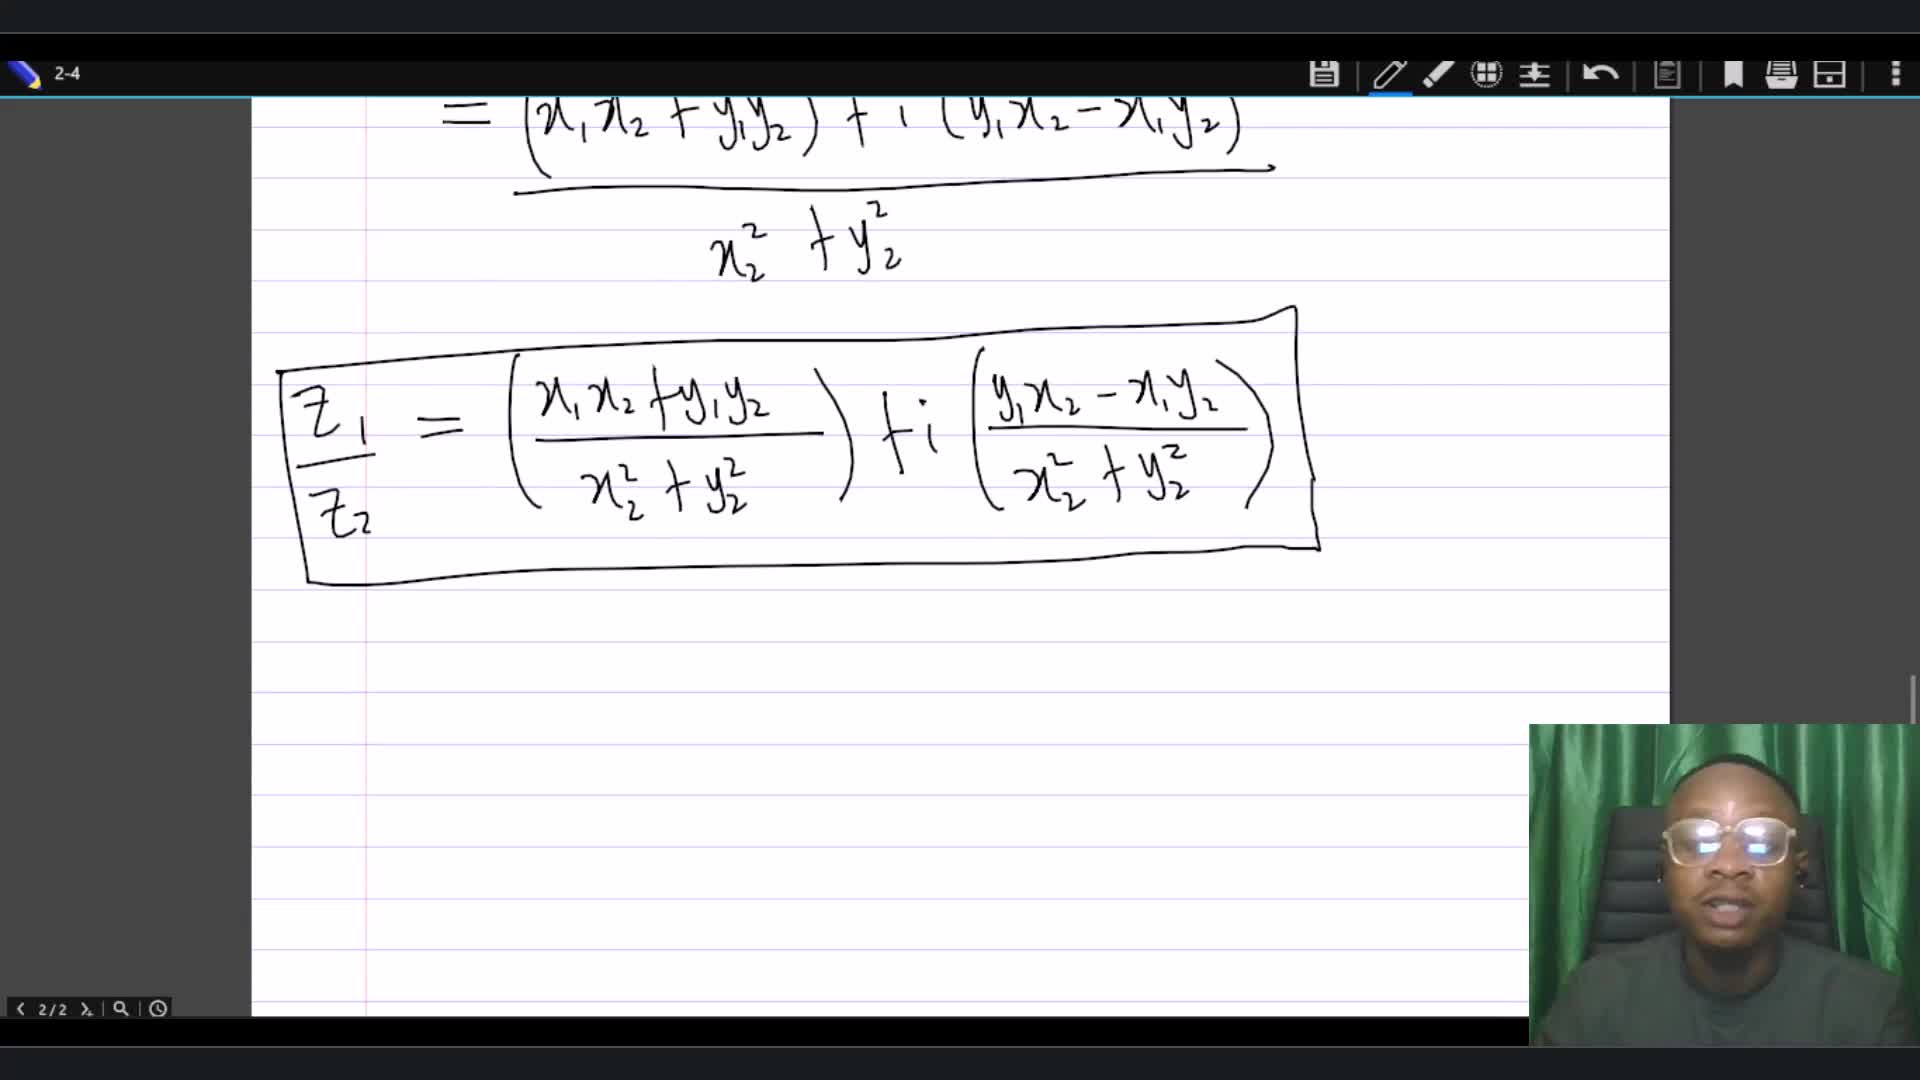 2-4
= (x₁x₂ + y₁y₂) + i (y₁x₂ - x₁y₂)
x₂² + y₂²
z₁/z₂ = ((x₁x₂ + y₁y₂)/(x₂² + y₂²)) + i ((y₁x₂ - x₁y₂)/(x₂² + y₂²))
2/2